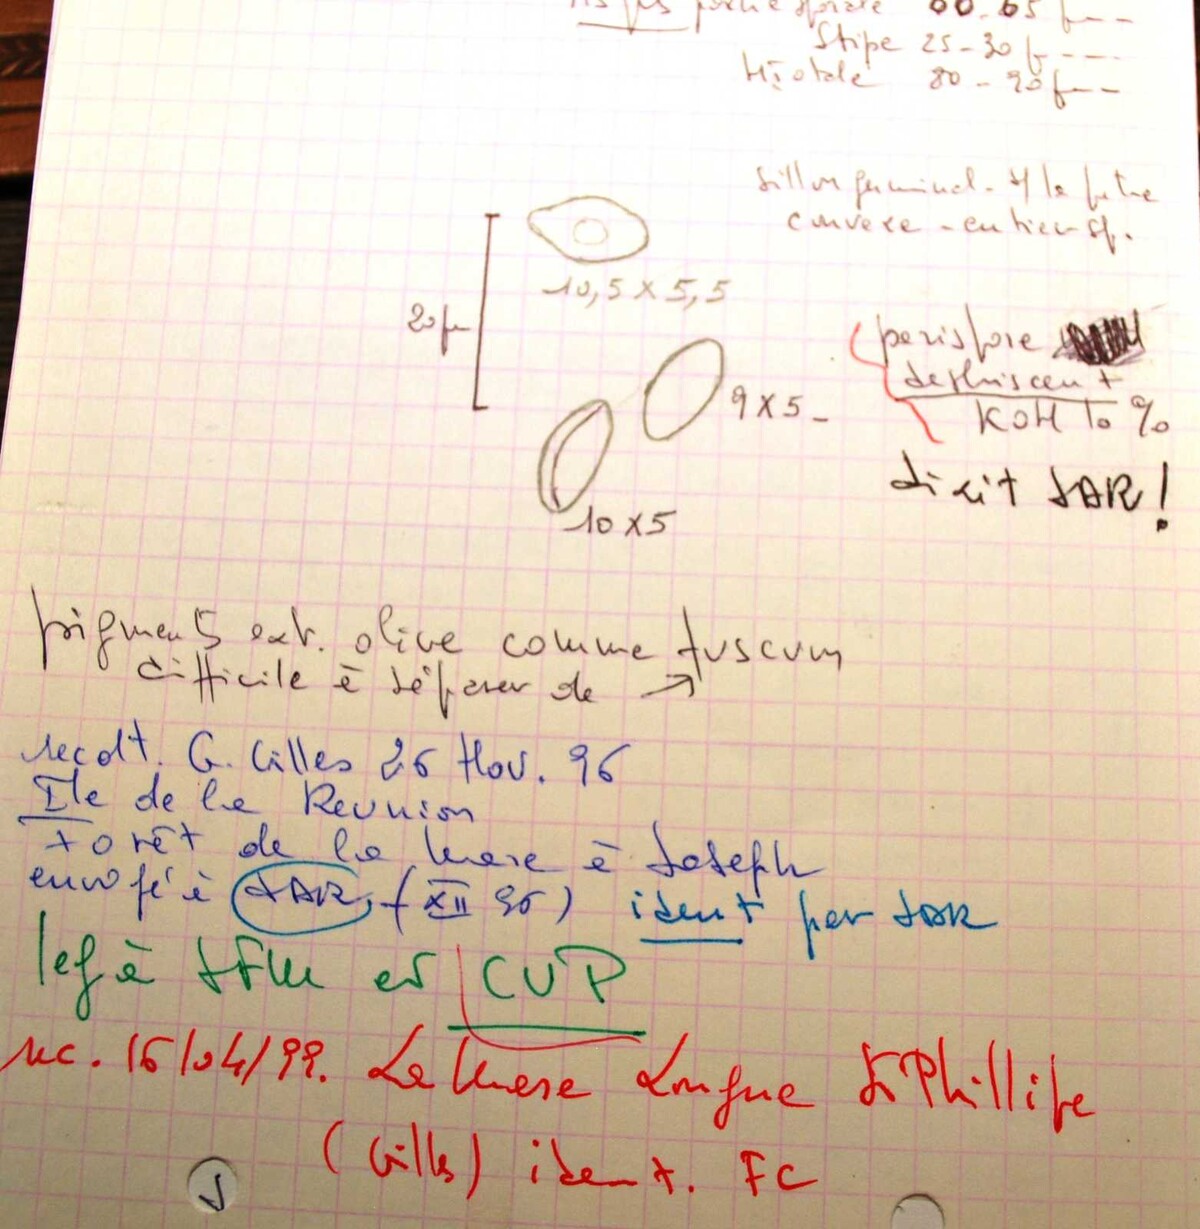 Stipe 25-30 µ
Ht totale 80-90 µ
sillon germinal - s/ la
convexe - entier sp.
10,5 x 5,5
20 µ
perispore
dehiscent
KOH 10 %
9 x 5 -
dixit JAR!
10 x 5
pigment ext. olive comme fuscum
difficile à séparer de →
recolt. G. Gilles 26 Nov. 96
Ile de la Reunion
Forêt de la Mare à Joseph
envoyé à JAR, (XII 96) ident par JAR
leg à JFM et CUP
rec. 16/04/99. La Mare Longue St Phillipe
(Gilles) ident. FC